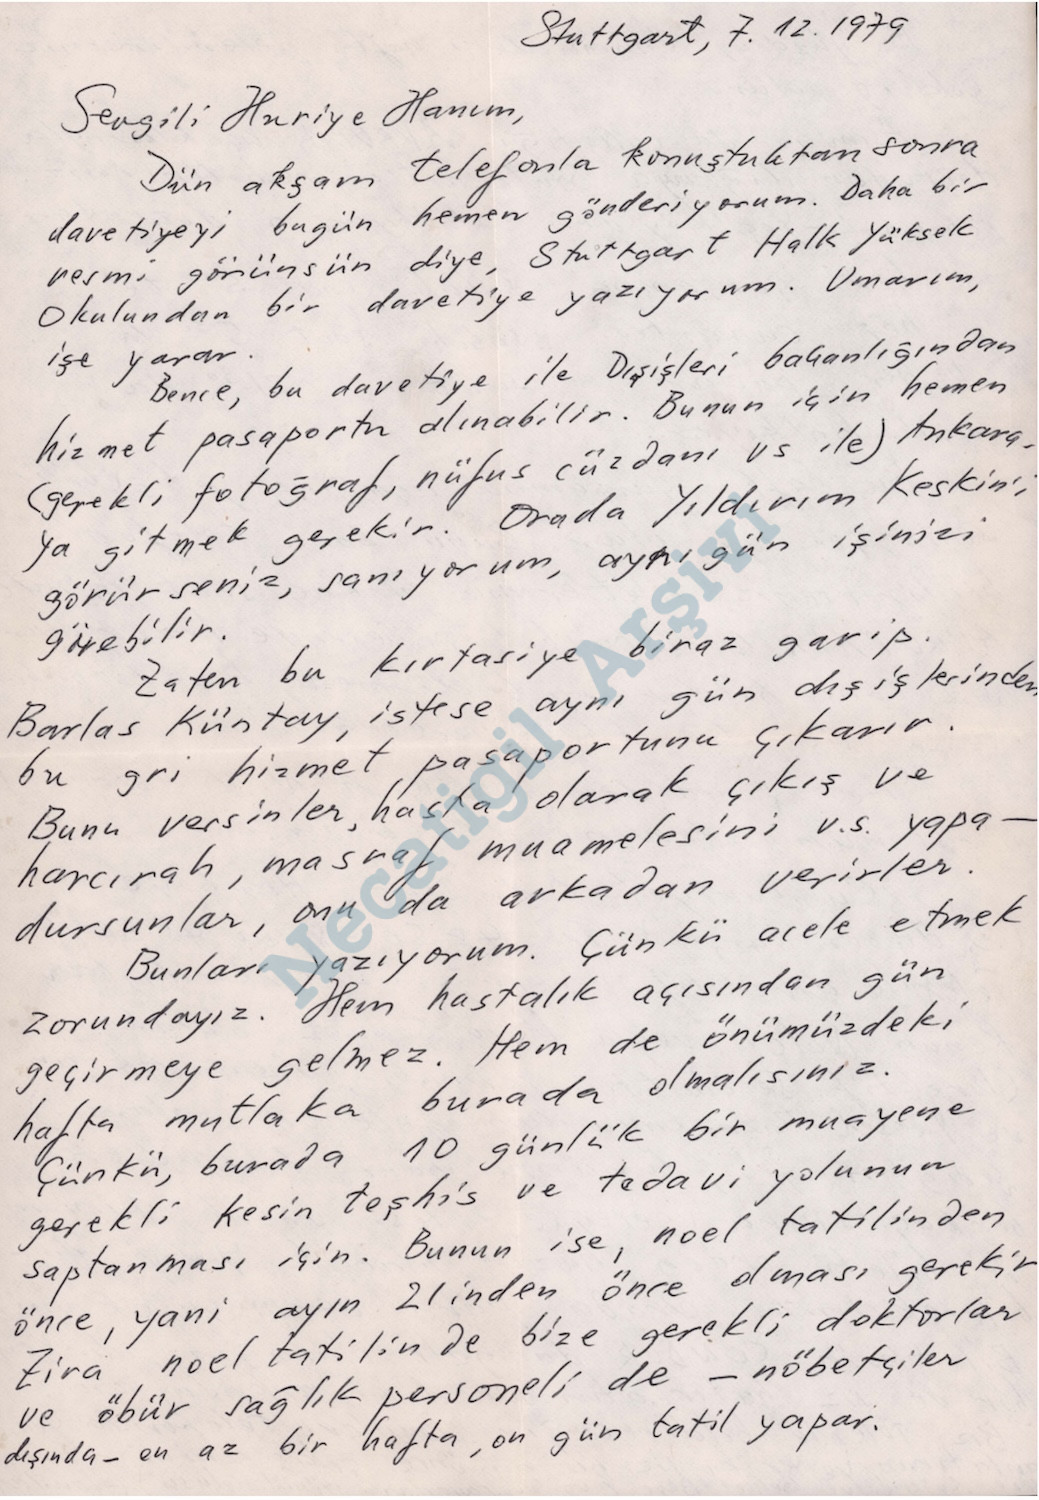 Stuttgart, 7.12.1979
Sevgili Huriye Hanım,
Dün akşam telefonla konuştuktan sonra
davetiyeyi bugün hemen gönderiyorum. Daha bir
resmi görünsün diye, Stuttgart Halk Yüksek
Okulundan bir davetiye yazıyorum. Umarım,
işe yarar.
Bence, bu davetiye ile Dışişleri bakanlığından
hizmet pasaportu alınabilir. Bunun için hemen
(gerekli fotoğraf, nüfus cüzdanı vs ile) Ankara-
ya gitmek gerekir. Orada Yıldırım Keskin'i
görürseniz, sanıyorum, aynı gün işinizi
görebilir.
Zaten bu kırtasiye biraz garip.
Barlas Küntay, istese aynı gün dışişlerinden
bu gri hizmet pasaportunu çıkarır.
Bunu versinler, hasta olarak çıkış ve
harcırah, masraf muamelesini v.s. yapa-
dursunlar, onu da arkadan verirler.
Bunları yazıyorum. Çünkü acele etmek
zorundayız. Hem hastalık açısından gün
geçirmeye gelmez. Hem de önümüzdeki
hafta mutlaka burada olmalısınız.
Çünkü, burada 10 günlük bir muayene
gerekli kesin teşhis ve tedavi yolunun
saptanması için. Bunun ise, noel tatilinden
önce, yani ayın 21inden önce olması gerekir
Zira noel tatilinde bize gerekli doktorlar
ve öbür sağlık personeli de - nöbetçiler
dışında - en az bir hafta, on gün tatil yapar.
Necatigil Arşivi